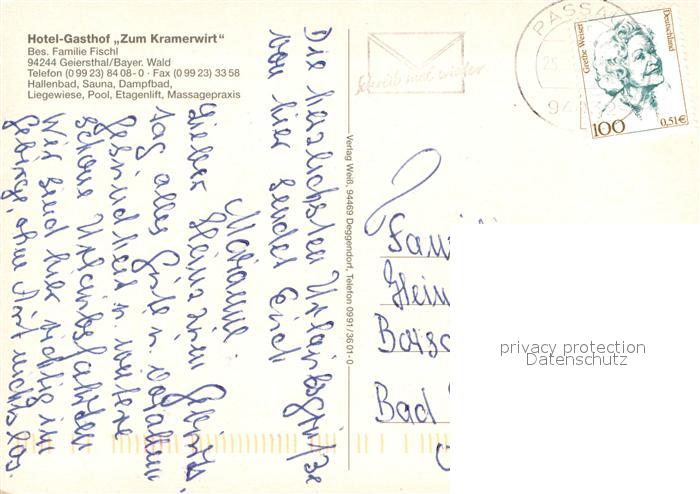 Hotel-Gasthof „Zum Kramerwirt"
Bes. Familie Fischl
94244 Geiersthal/Bayer. Wald
Telefon (0 99 23) 84 08-0 · Fax (0 99 23) 33 58
Hallenbad, Sauna, Dampfbad,
Liegewiese, Pool, Etagenlift, Massagepraxis
Die herzlichsten Urlaubsgrüße
von hier sendet Euch
Marianne.
Lieber Heinz zum Geburts-
tag alles Gute u. vor allem
Gesundheit u. weitere
schöne Urlaubsfahrten
Wir sind hier richtig im
Gebirge, ohne nichts los.
Verlag Weiß, 94469 Deggendorf, Telefon 0991/3601-0
Schreib mal wieder
PASSAU
25.
94032
Grethe Weiser
Deutschland
100
0,51€
Fam
Hein
Bad
privacy protection
Datenschutz